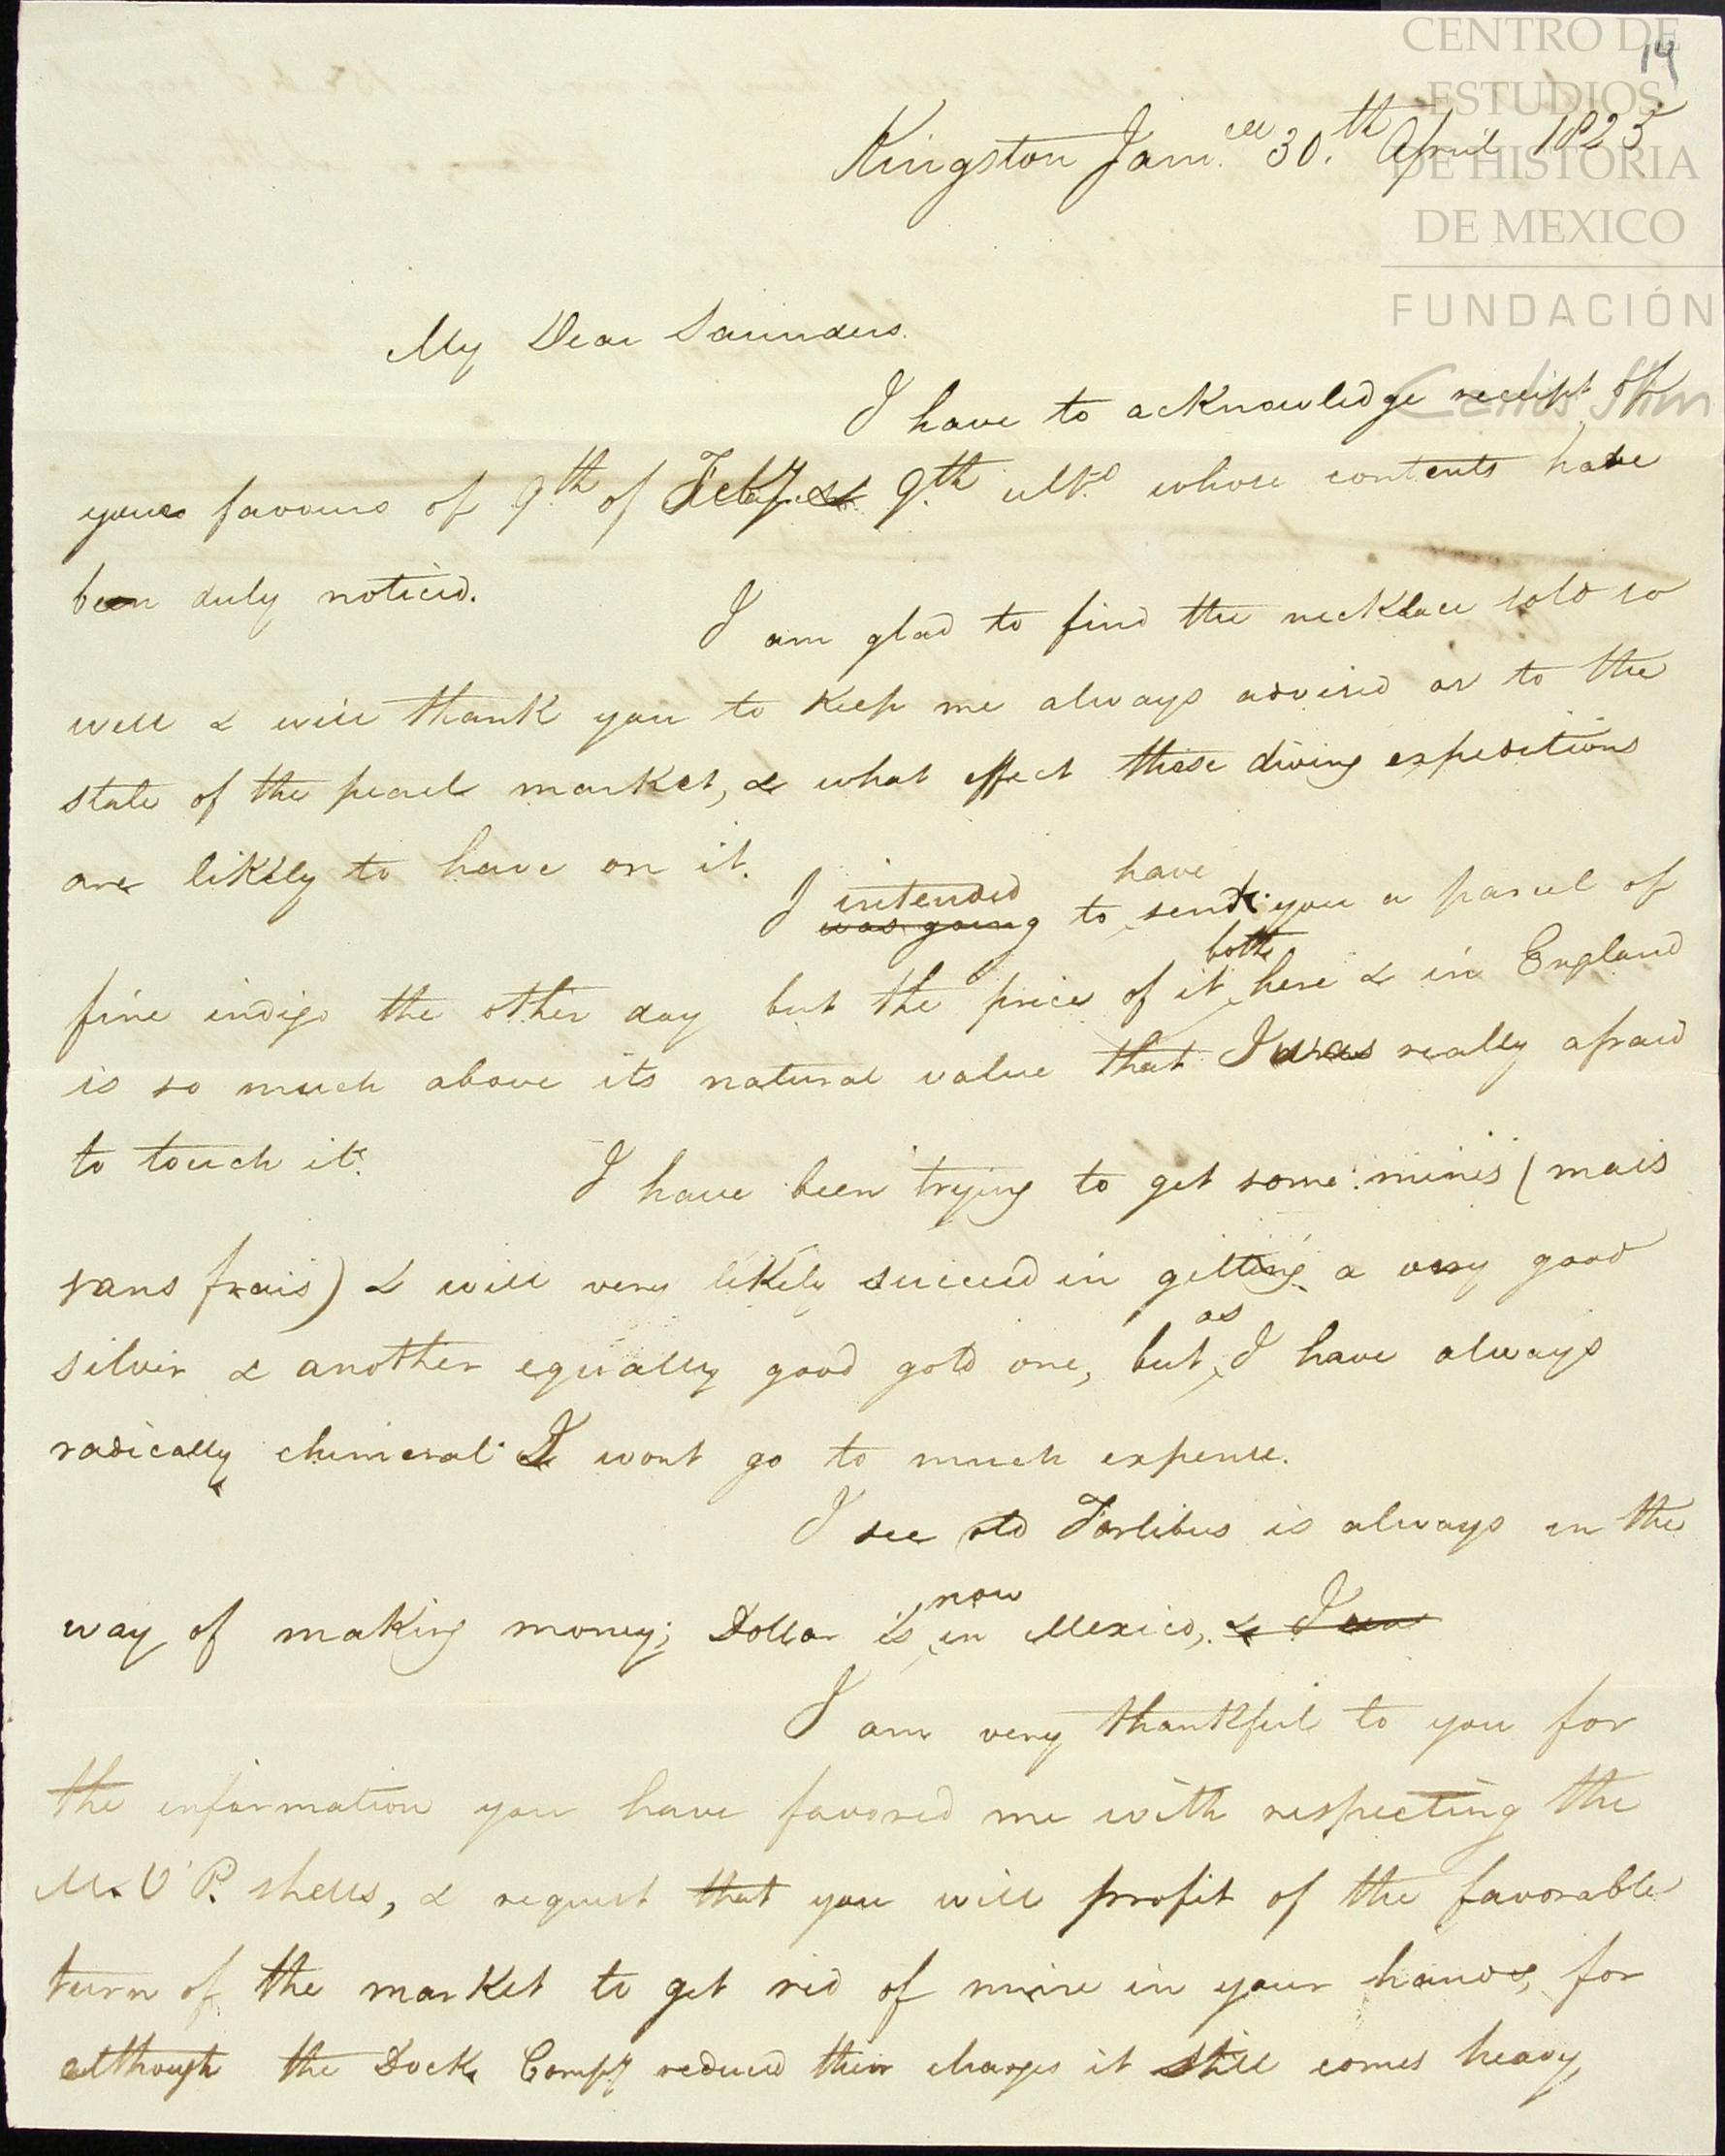 CENTRO DE
ESTUDIOS
DE HISTORIA
DE MEXICO
FUNDACIÓN
Carlos Slim
14
Kingston Jam.ca 30.th April 1825
My Dear Saunders.
I have to acknowledge receipt of
your favours of 9th of Feby & 9.th ulto whose contents have
been duly noticed.
I am glad to find the necklace sold so
well & will thank you to keep me always advised as to the
state of the pearl market, & what effect these diving expeditions
are likely to have on it.
I was going intended to have send you a parcel of
fine indigo the other day but the price of it both here & in England
is so much above its natural value that I was really afraid
to touch it.
I have been trying to get some mines (mais
sans frais) & will very likely succeed in getting a very good
silver & another equally good gold one, but as I have always
radically chimeral I wont go to much expense.
I see old Forlibus is always in the
way of making money; Dollar is now in Mexico, & I
I am very thankful to you for
the information you have favored me with respecting the
M. O' P. shells, & request that you will profit of the favorable
turn of the market to get rid of mine in your hands, for
although the Dock Compy reduced their charges it still comes heavy